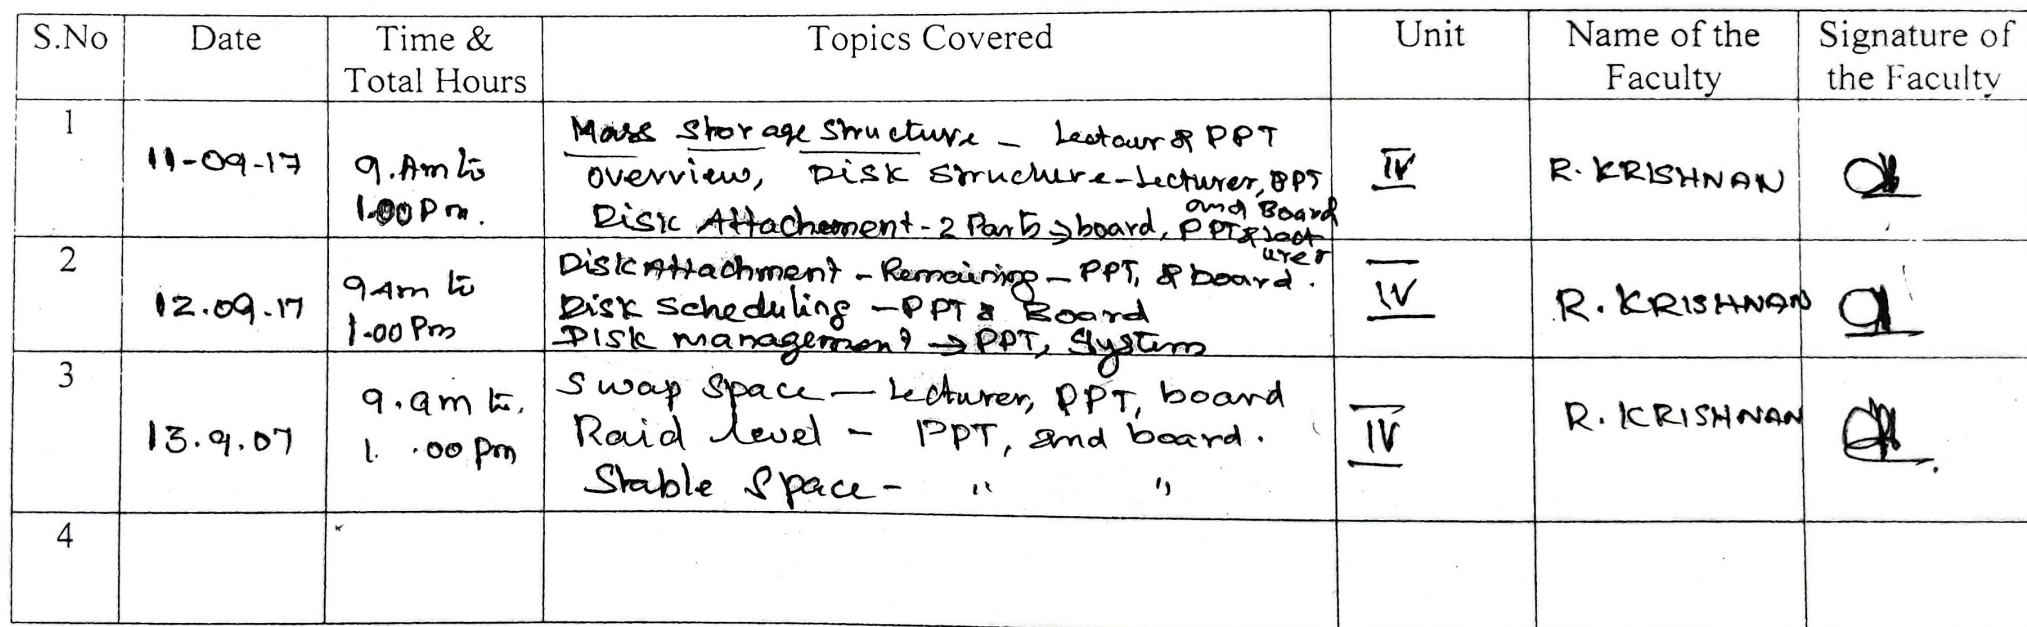 S.No Date Time & Total Hours Topics Covered Unit Name of the Faculty Signature of the Faculty
1 11-09-17 9.Am to 1.00 Pm. Mass Storage Structure - Lectour & PPT
overview, Disk Structure - Lecturer, PPT and Board
Disk Attachement - 2 Parts → board, PPT & lecturer
IV R. KRISHNAN
2 12.09.17 9Am to 1.00 Pm Disk Attachment - Remaining - PPT, & board.
Disk Scheduling - PPT & Board
Disk management → PPT, System
IV R. KRISHNAN
3 13.9.07 9.am to. 1.00 pm Swap Space - Lecturer, PPT, board
Raid level - PPT, and board.
Stable Space - " "
IV R. KRISHNAN
4